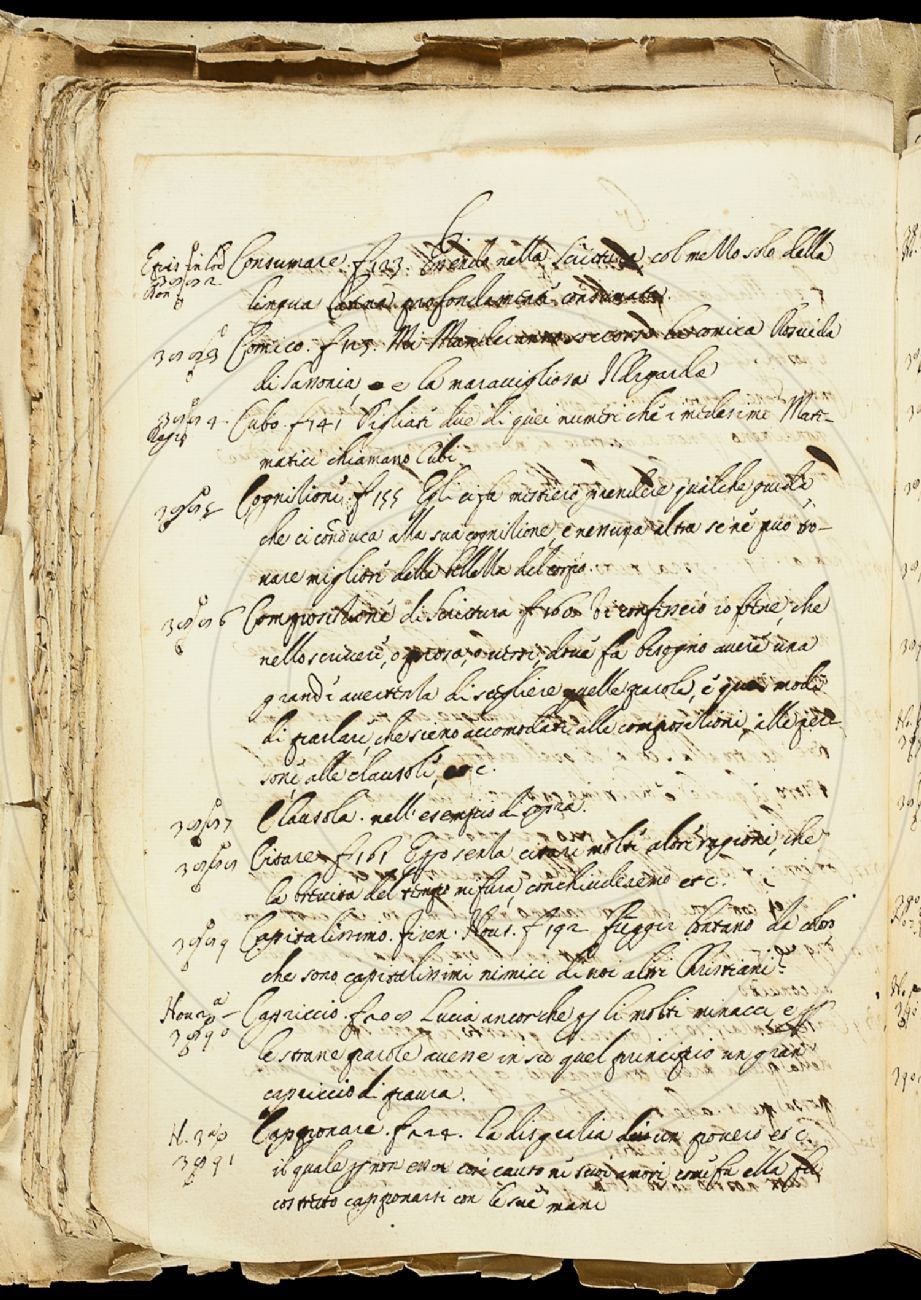 C
Consumare. f. 123. Essendo nella Scrittura, col mezzo solo della
lingua latina profondamente consumata.
Comico. f. 125. Mi Manderanno soccorso la comica Rosuida
di Sassonia, e la maravigliosa Ildegarda
Cubo. f 141 Pigliati due di quei numeri che i medesimi Mate-
matici chiamano Cubi
Cognitione. f 155 Egli ci fa mestiero prendere qualche guida,
che ci conduca alla sua cognitione, e nessuna altra se ne può do-
nare migliore della bellezza del corpo.
Compositione di Scrittura f 160 Vi confesserò io bene, che
nello scrivere, o prosa, o versi, dove fa bisogno avere una
grande avertenza di scegliere quelle parole, e quei modi
di parlare, che sieno accomodati alle compositioni, alle per-
sone, alle clausole, etc.
Clausola. nell'esempio di sopra.
Citare. f 161 E senza citare molte altre ragioni, che
la brevità del tempo mi fura, conchiuderemo etc.
Capitalissimo. firen. Nov. f 192 fuggir lontano da coloro
che sono capitalissimi nimici di noi altri Christiani.
Capriccio. f 208 Lucia ancorche p li molti minacci e p
le strane parole avesse in su quel principio un gran
capriccio di paura.
Capponare. f 224. La disgratia di un povero etc.
il quale p non esser così cauto ne suoi amori, come fa ella, fu
costretto capponarsi con le sue mani